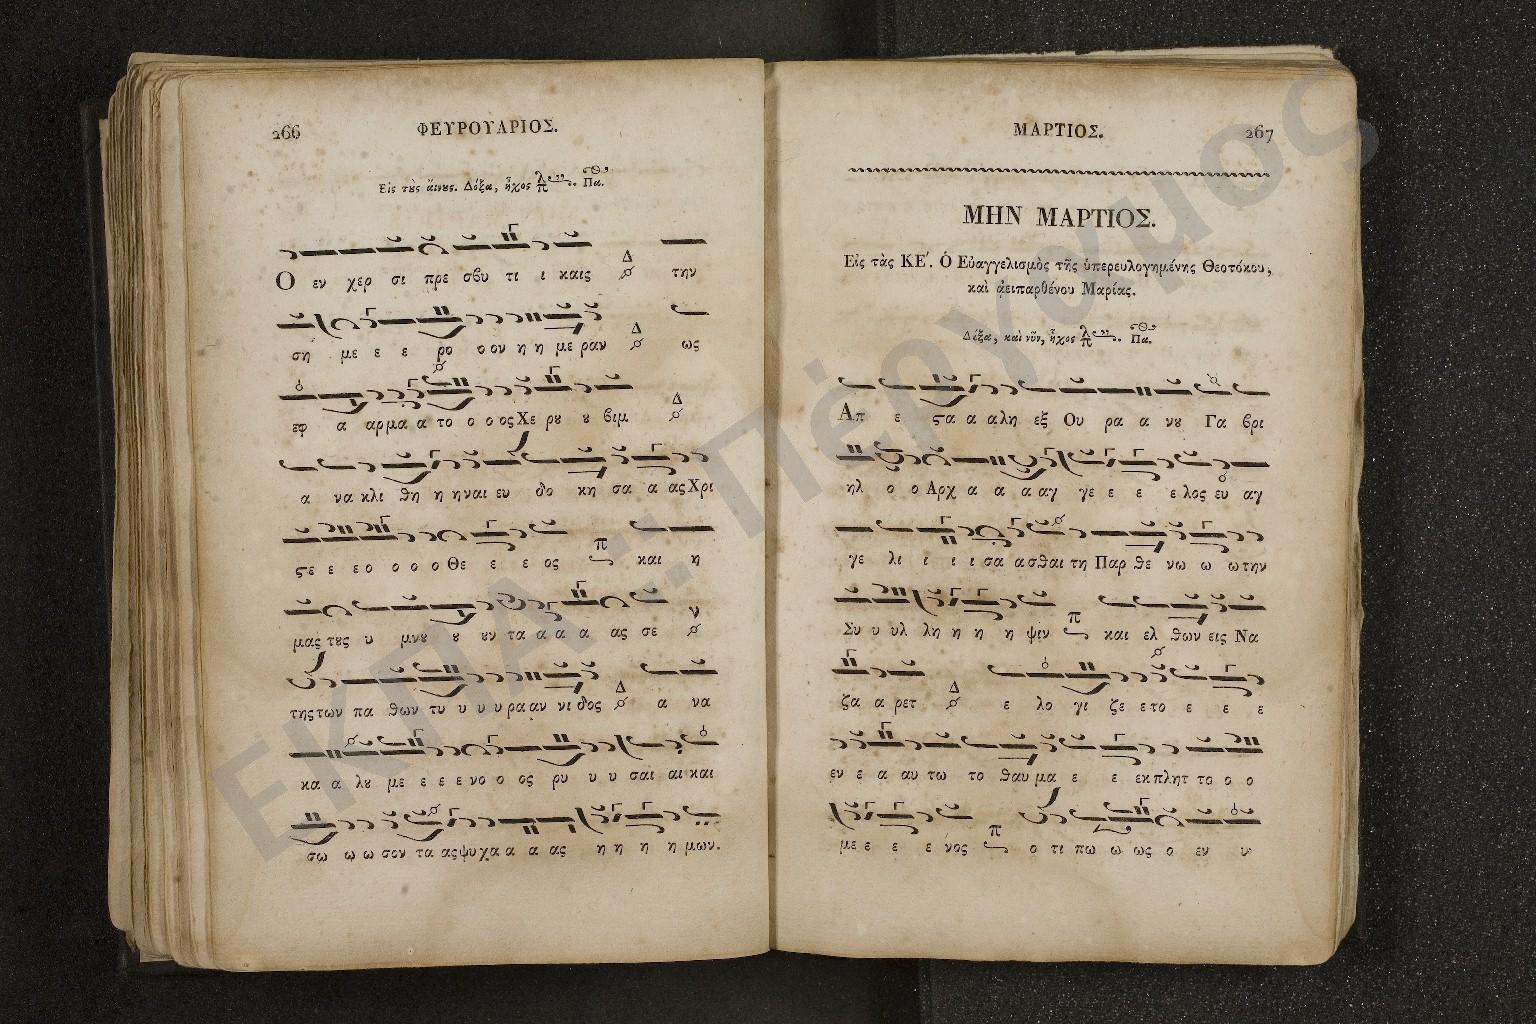 266
ΦΕΥΡΟΥΑΡΙΟΣ.
Εἰς τȣ̀ς αἴνȣς. Δόξα, ἦχος Πα.
Ο εν χερ σι πρε σβυ τι ι καις Δ την
ση με ε ε ρο ο ον η η με ραν Δ ως
εφ α αρμα α το ο ο ος Χε ρȣ ȣ βιμ Δ
α να κλι θη η η ναι ευ δο κη σα α ας Χρι
ϛε ε ε ο ο ο ο Θε ε ε ος π και η
μας τȣς υ μνȣ ȣ ȣν τα α α α ας σε ν
της των πα θων τυ υ υ υ ρα αν νι δος Δ α να
κα α λȣ με ε ε ε νο ο ος ρυ υ υ σαι αι και
σω ω ω σον τα ας ψυ χα α α ας η η η η μων.
ΜΑΡΤΙΟΣ.
267
ΜΗΝ ΜΑΡΤΙΟΣ.
Εἰς τὰς ΚΕ΄. Ὁ Εὐαγγελισμὸς τῆς ὑπερευλογημένης Θεοτόκου,
καὶ ἀειπαρθένου Μαρίας.
Δόξα, καὶ νῦν, ἦχος Πα.
Απ ε ϛα α α λη εξ Ου ρα α νȣ Γα βρι
ηλ ο ο Αρχ α α α αγ γε ε ε ε λος ευ αγ
γε λι ι ι ι σα ασθαι τη Παρ θε νω ω ω την
Συ υ υλ λη η η η ψιν π και ελ θων εις Να
ζα α ρετ Δ ε λο γι ζε ε το ε ε ε
εν ε α αυ τω το θαυ μα ε ε εκ πλητ το ο ο
με ε ε ε νος π ο τι πω ω ως ο εν υ
ΕΚΠΑ :: Πέργαμος